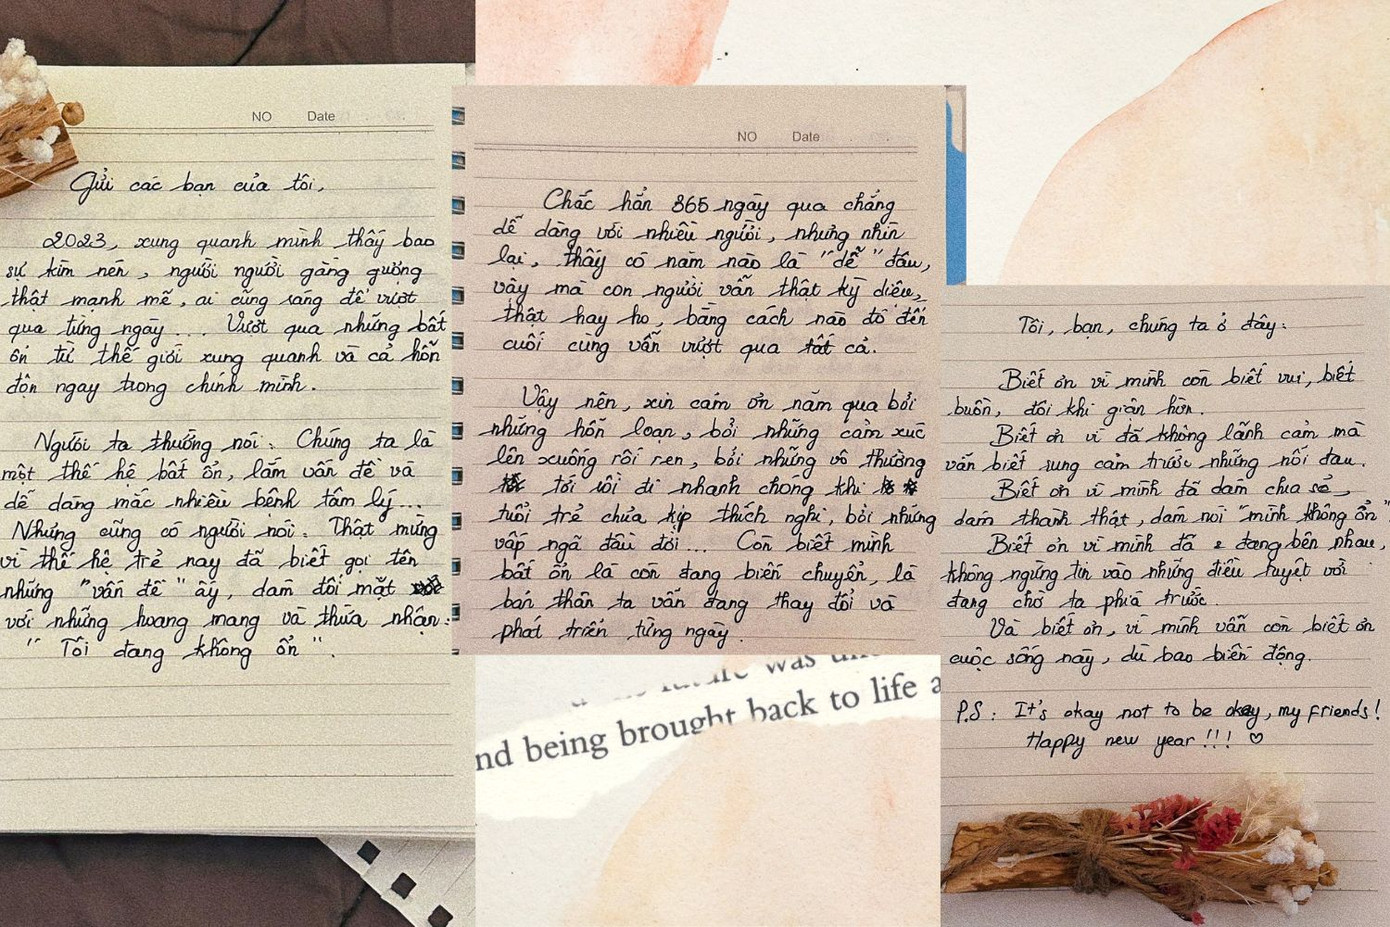 NO Date
Gửi các bạn của tôi,
2023, xung quanh mình thấy bao
sự kìm nén, người người gắng gượng
thật mạnh mẽ, ai cũng ráng để vượt
qua từng ngày... Vượt qua những bất
ổn từ thế giới xung quanh và cả hỗn
độn ngay trong chính mình.
Người ta thường nói: Chúng ta là
một thế hệ bất ổn, lắm vấn đề và
dễ dàng mắc nhiều bệnh tâm lý...
Nhưng cũng có người nói: Thật mừng
vì thế hệ trẻ nay đã biết gọi tên
những "vấn đề" ấy, dám đối mặt
với những hoang mang và thừa nhận:
"Tôi đang không ổn".
NO Date
Chắc hẳn 365 ngày qua chẳng
dễ dàng với nhiều người, nhưng nhìn
lại, thấy có năm nào là "dễ" đâu,
vậy mà con người vẫn thật kỳ diệu,
thật hay ho, bằng cách nào đó đến
cuối cùng vẫn vượt qua tất cả.
Vậy nên, xin cám ơn năm qua bởi
những hỗn loạn, bởi những cảm xúc
lên xuống rối ren, bởi những vô thường
tới rồi đi nhanh chóng khi
tuổi trẻ chưa kịp thích nghi, bởi những
vấp ngã đầu đời... Còn biết mình
bất ổn là còn đang biến chuyển, là
bản thân ta vẫn đang thay đổi và
phát triển từng ngày.
nd being brought back to life a
Tôi, bạn, chúng ta ở đây:
Biết ơn vì mình còn biết vui, biết
buồn, đôi khi giận hờn.
Biết ơn vì đã không lãnh cảm mà
vẫn biết rung cảm trước những nỗi đau.
Biết ơn vì mình đã dám chia sẻ,
dám thành thật, dám nói "mình không ổn"
Biết ơn vì mình đã & đang bên nhau,
không ngừng tin vào những điều tuyệt vời
đang chờ ta phía trước.
Và biết ơn, vì mình vẫn còn biết ơn
cuộc sống này, dù bao biến động.
P.S: It's okay not to be okay, my friends!
Happy new year!!! ♡